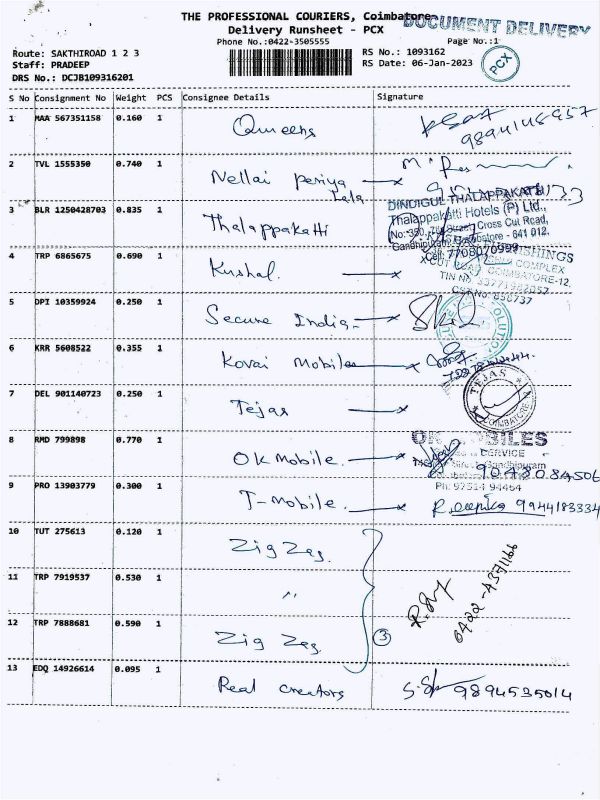 THE PROFESSIONAL COURIERS, Coimbatore
DOCUMENT DELIVERY
Delivery Runsheet - PCX
Phone No.:0422-3505555
Page No.:1
Route: SAKTHIROAD 1 2 3
RS No.: 1093162
PCX
Staff: PRADEEP
RS Date: 06-Jan-2023
DRS No.: DCJB109316201
S No Consignment No Weight PCS Consignee Details Signature
1 MAA 567351158 0.160 1 Queens
2 TVL 1555350 0.740 1 Nellai periya
Lala
3 BLR 1250428703 0.835 1 Thalappakatti
DINDIGUL THALAPPAKATTI
Thalappakatti Hotels (P) Ltd.,
Cross Cut Road,
Gandhipuram, Coimbatore - 641 012.
Cell: 7708070999
4 TRP 6865675 0.690 1 Kushal
COMPLEX
COIMBATORE-12.
TIN No
CST No: 856737
5 DPI 10359924 0.250 1 Secure India
6 KRR 5608522 0.355 1 Kovai Mobiles
7 DEL 901140723 0.250 1 Tejas
TEJAS
COIMBATORE
8 RMD 799898 0.770 1 OK mobile.
OK MOBILES
SERVICE
Gandhipuram
9048084506
Ph: 97514 94464
9 PRO 13903779 0.300 1 T-mobile. R.deepika 9944183334
10 TUT 275613 0.120 1 Zig Zag.
11 TRP 7919537 0.530 1 "
0422-4371166
12 TRP 7888681 0.590 1 Zig Zag 3
13 EDQ 14926614 0.095 1 Real creators 9894535014